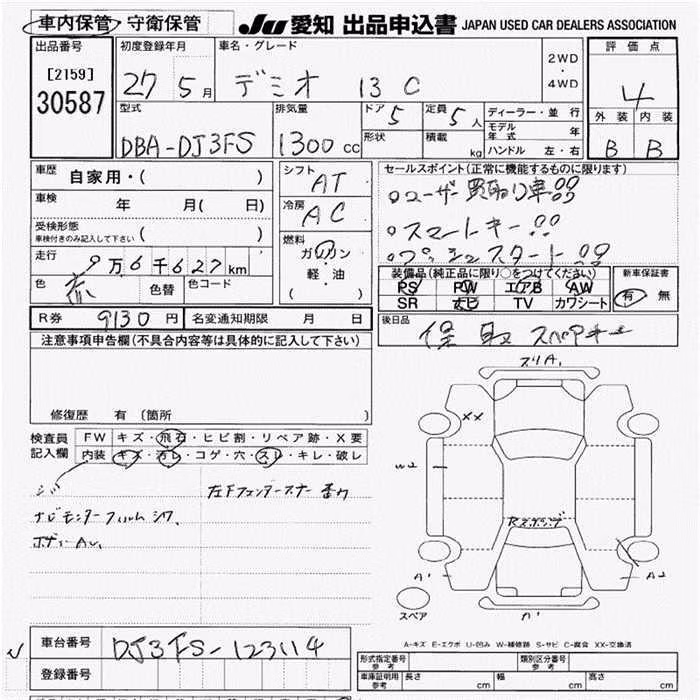 車内保管・守衛保管
JU 愛知 出品申込書 JAPAN USED CAR DEALERS ASSOCIATION
出品番号
[2159]
30587
初度登録年月
27 5月
車名・グレード
デミオ 13 C
2WD
・
4WD
評価点
4
外装 内装
B B
型式
DBA-DJ3FS
排気量
1300cc
ドア 5
形状
定員 5人
積載 kg
ディーラー・並行
モデル年式 年
ハンドル 左・右
車歴
自家用・( )
車検
年 月( 日)
受検形態
車検付きのみ記入して下さい ( )
走行
9万6千627km
色
赤
色替
色コード
シフト
AT
冷房
AC
燃料
ガソリン
・
軽・油
( )
セールスポイント(正常に機能するものに限ります)
○ユーザー買取り車!!
○スマートキー!!
○プッシュスタート!!
装備品(純正品に限り○をつけてください)
PS PW エアB AW
SR ナビ TV カワシート
新車保証書
有 無
R券 9130円
名変通知期限 月 日
後日品
保 取 スペアキー
注意事項申告欄(不具合内容等は具体的に記入して下さい)
修復歴 有 〔箇所 〕
検査員
記入欄
FW キズ・飛石・ヒビ割・リペア跡・X要
内装 キズ・汚レ・コゲ・穴・スレ・キレ・破レ
シワ
ナビモニターフィルムシワ、
ボディーAU、
左Fフェンダーライナー
スリA1
XX
W2
A1
A2
スペア
A-キズ E-エクボ U-凹み W-補修跡 S-サビ C-腐食 XX-交換済
車台番号
DJ3FS-123114
登録番号
形式指定番号
参考
類別区分番号
参考
車庫証明用
参考
長さ cm
幅 cm
高さ cm